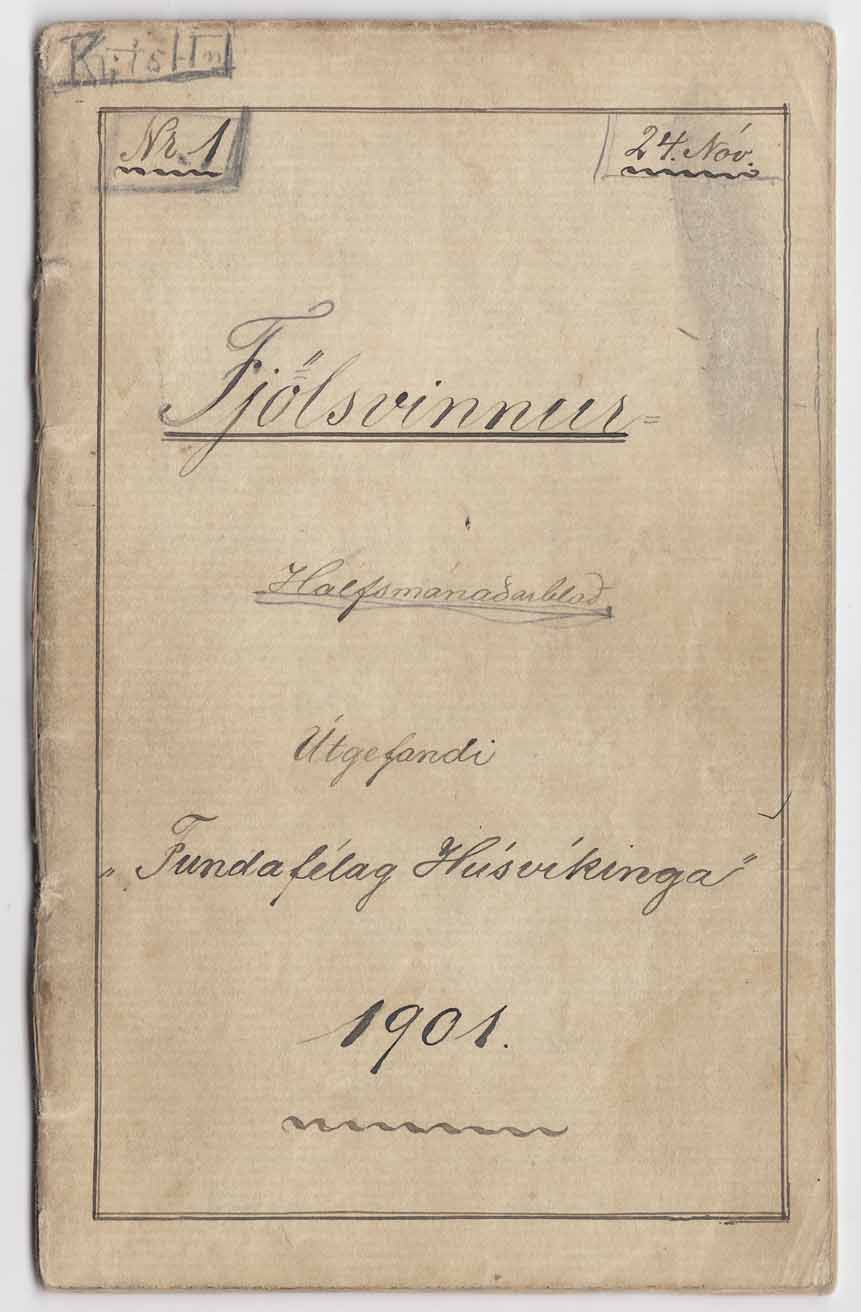 Nr. 1
24. Nóv.
Fjölsvinnur
Hálfsmánaðarblað.
Útgefandi
„Fundafélag Húsvíkinga"
1901.